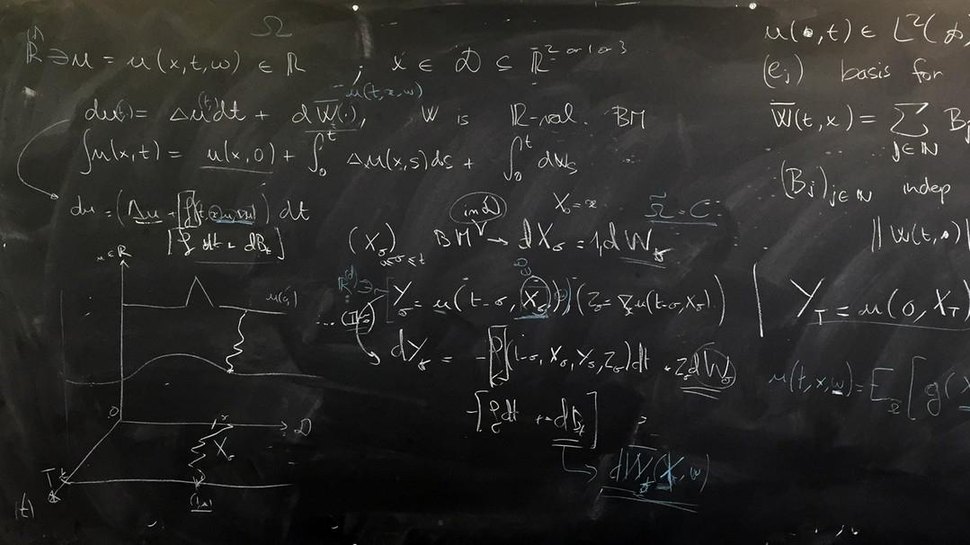 Ω
ℝ ∋ u = u(x,t,w) ∈ ℝ , x ∈ D ⊆ ℝ^2 or 1 or 3
u(t,x,w)
du(t) = Δu(t)dt + dW̄(·), W is ℝ-val. BM
∫u(x,t) = u(x,0) + ∫₀ᵗ Δu(x,s)ds + ∫₀ᵗ dWs
du = (Δu + f(t, u, ∇u)) dt
[f dt + dBt]
(Xσ) 0≤σ≤t BM in D → dXσ = 1 dWσ
X₀ = x
Ω̄ = C
Yσ = u(t-σ, Xσ), (Zσ = ∇u(t-σ, Xσ))
dYσ = -f(t-σ, Xσ, Yσ, Zσ)dt + Zσ dWσ
-[f dt + dBt]
dWt(X, w)
u ∈ ℝ
u(0,·)
0
x
D
Xσ
T
(t)
u(·,t) ∈ L²(D,
(ej) basis for
W̄(t,x) = Σ j∈ℕ Bj
(Bj) j∈ℕ indep
||W(t,·)||
YT = u(0, XT)
u(t,x,w) = E [g(X